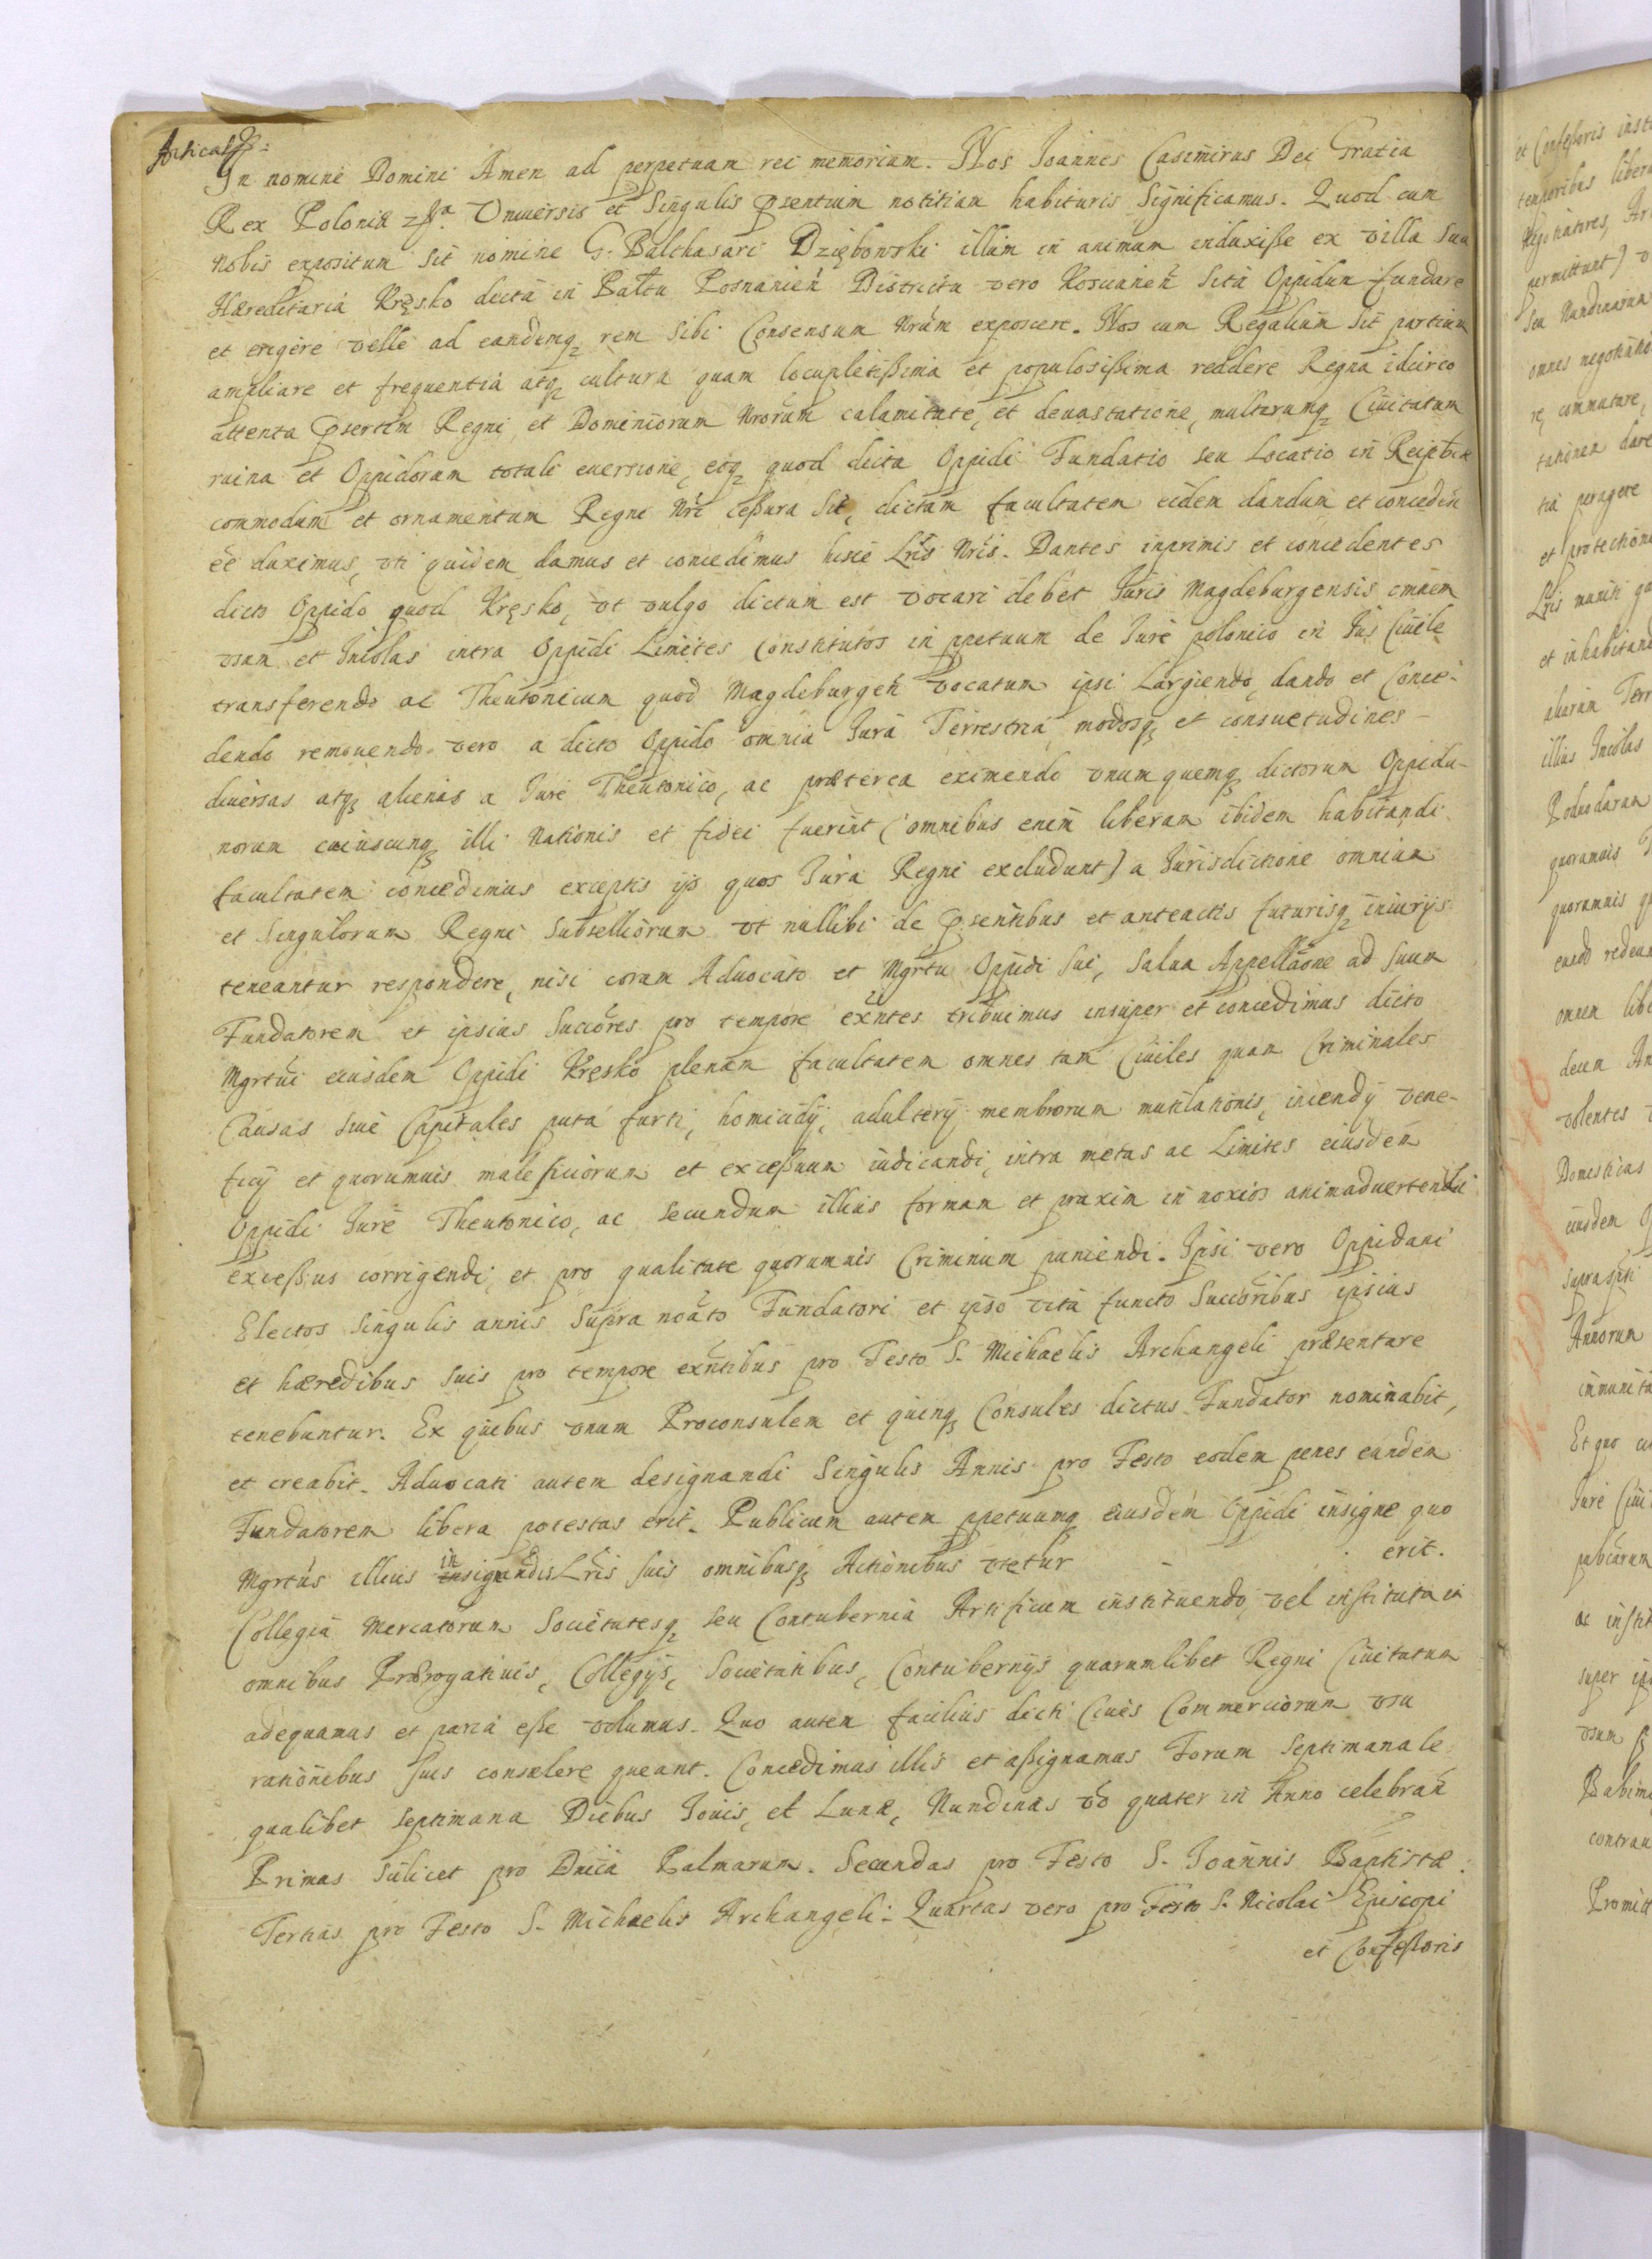 In nomine Domini Amen ad perpetuam rei memoriam. Nos Joannes Casimirus Dei Gratia
Rex Poloniæ Vniuersis et Singulis pʒsentium notitiam habituris Significamus. Quod cum
Nobis expositum sit nomine G. Balthasari Dziębowski illum in animum induxiße ex villa Sua
Hæreditaria Kręsko dicta in Pałtu Posnanien̄ Districtu vero Koscianen̄ Sita Oppidum fundare
et erigere velle ad eandemqʒ rem Sibi Consensum Nrum exposcere. Nos cum Regalium Sit partium
ampliare et frequentia atqʒ cultura quam locupletißima et populosißima reddere Regna idcirco
attenta pʒsertim Regni et Dominiorum Nrorum calamitate, et deuastatione, multarumqʒ Ciuitatum
ruina et Oppidorum totali euersione, eoqʒ quod dicta Oppidi Fundatio seu Locatio in Reipbcæ
commodum et ornamentum Regni Nri ceßura Sit, dictam facultatem eidem dandum et concedend
ee duximus, vti quidem damus et concedimus hisce Lris Nris. Dantes inprimis et concedentes
dicto Oppido quod Kręsko, vt vulgo dictum est vocari debet Juris Magdeburgensis omnem
vsum et Incolas intra Oppidi Limites Constitutos in ppetuum de Jure polonico in Jus Ciuile
transferendo ac Theutonicum quod Magdeburgen̄ vocatum ipsi Largiendo, dando et Conce-
dendo remouendo vero a dicto Oppido omnia Jura Terrestria, modosqʒ et consuetudines -
diuersas atqʒ alienas a Jure Theutonico, ac præterea eximendo vnumquemqʒ dictorum Oppida-
norum cuiuscunqʒ illi Nationis et fidei fuerint (omnibus enim liberam ibidem habitandi
facultatem concedimus exceptis ijs quos Jura Regni excludunt) a Jurisdictione omnium
et Singulorum Regni Subselliorum vt nullibi de pʒsentibus et anteactis futurisqʒ iniurijs
teneantur respondere, nisi coram Aduocato et Mgrtu Oppidi sui, Salua Appellãone ad Suum
Fundatorem et ipsius Succores pro tempore exntes tribuimus insuper et concedimus dicto
Mgrtui eiusdem Oppidi Kręsko plenam facultatem omnes tam Ciuiles quam Criminales
Causas siue Capitales puta furti, homicidij, adulterij membrorum mutilationis, incendij vene-
ficij et quorumuis maleficiorum et exceßuum iudicandi, intra metas ac Limites eiusdem
Oppidi Jure Theutonico, ac secundum illius formam et praxim in noxios animaduertendi
exceßus corrigendi, et pro qualitate quorumuis Criminum puniendi. Ipsi vero Oppidani
Electos singulis annis Supra noato Fundatori et ipso vita functo Succoribus ipsius
et hæredibus Suis pro tempore exntibus pro Festo S. Michaelis Archangeli præsentare
tenebuntur. Ex quibus vnum Proconsulem et quinqʒ Consules dictus Fundator nominabit,
et creabit. Aduocati autem designandi Singulis Annis pro Festo eodem penes eundem
Fundatorem libera potestas erit. Publicum autem ppetuumqʒ eiusdem Oppidi insigne quo
Mgrtus illius insignandis Lris suis omnibusqʒ Actionibus vtetur - - erit.
Collegia Mercatorum Societatesqʒ seu Contubernia Artificum instituendo, vel instituta in
omnibus Prærogatiuis, Collegijs, Societatibus, Contubernijs quarumlibet Regni Ciuitatum
adequamus et paria eße volumus. Quo autem facilius dicti Ciues Commerciorum vsu
rationibus suis consulere queant. Concedimus illis et aßignamus Forum Septimanale
qualibet septimana Diebus Jouis, et Lunæ, Nundinas vo quater in Anno celebran̄
Primas scilicet pro Dnica Palmarum. Secundas pro Festo S. Joannis Baptistæ.
Tertias pro Festo S. Michaelis Archangeli. Quartas vero pro Festo S. Nicolai Episcopi
et Confeßoris